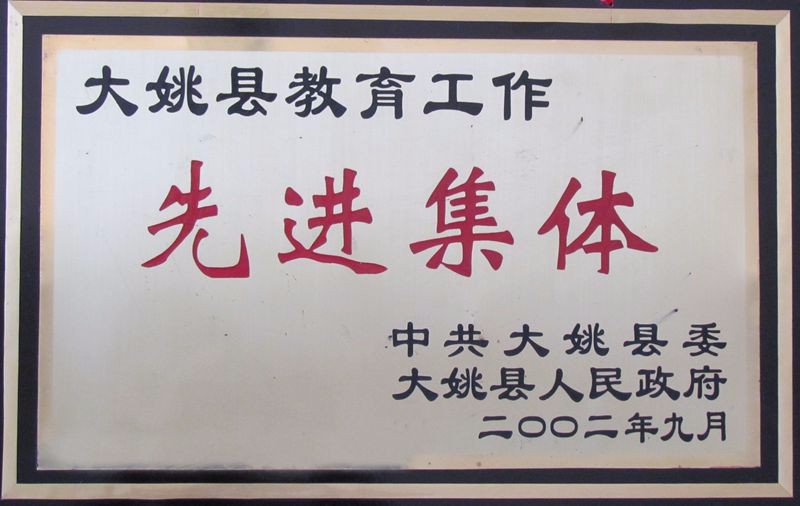 大姚县教育工作
先进集体
中共大姚县委
大姚县人民政府
二〇〇二年九月